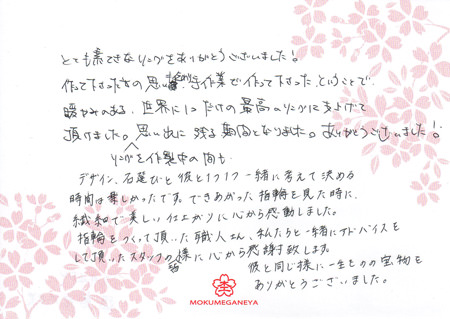 とても素てきなリングをありがとうございました!
作って下さった方の思い 手作業で作って下さったということで、
暖かみのある、世界に1つだけの最高のリングに仕上げて
頂けました。思い出に残る期間となりました。ありがとうございました!
リングを作製中の間も
デザイン、石選びと彼と1つ1つ一緒に考えて決める
時間は楽しかったです。できあがった指輪を見た時に、
繊細で美しい仕上がりに心から感動しました。
指輪をつくって頂いた職人さん、私たちと一緒にアドバイスを
して頂いたスタッフの皆様に心から感謝致します。
彼と同じ様に一生ものの宝物を
ありがとうございました。
MOKUMEGANEYA